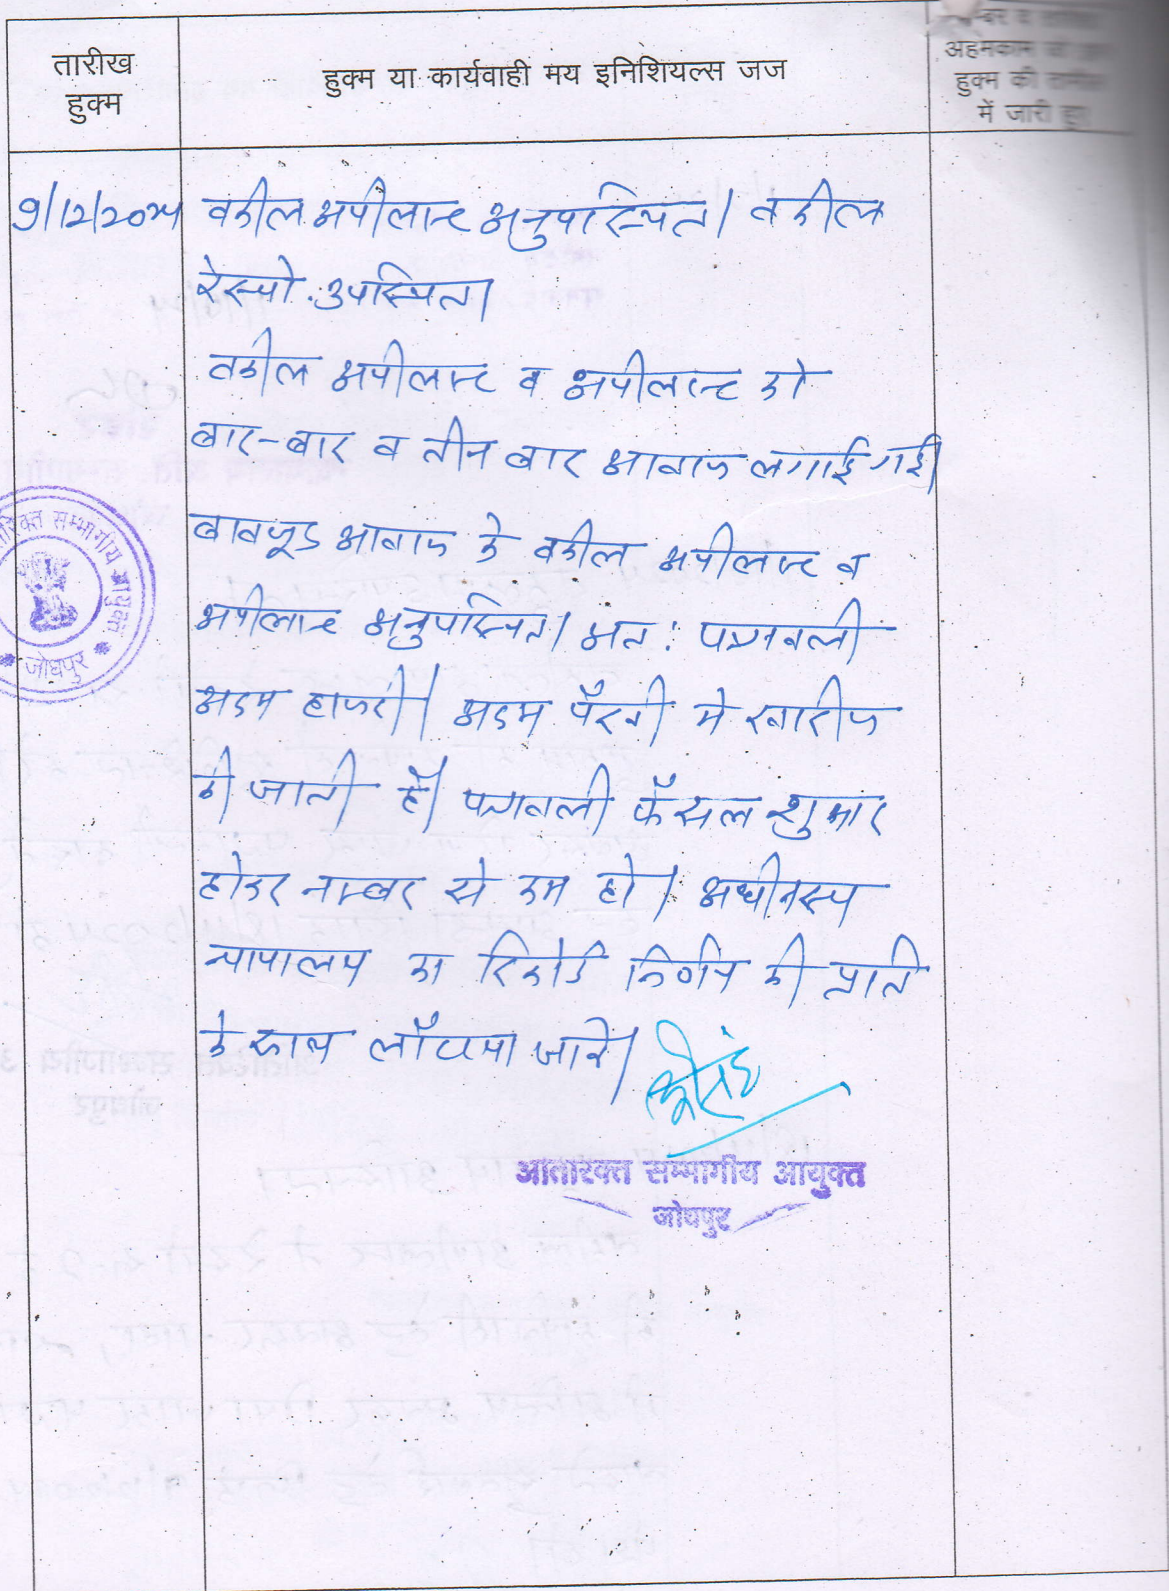 तारीख
हुक्म
हुक्म या कार्यवाही मय इनिशियल्स जज
अहमकाम
हुक्म की
में जारी हुए
9/12/2024 वकील अपीलान्ट अनुपस्थित। वकील
रेस्पो. उपस्थित।
वकील अपीलान्ट व अपीलान्ट को
बार-बार व तीन बार आवाज लगाई गई।
बावजूद आवाज के वकील अपीलान्ट व
अपीलान्ट अनुपस्थित। अत: पत्रावली
अदम हाजरी/अदम पैरवी मे खारीज
की जाती है। पत्रावली फैसल शुमार
होकर नम्बर से कम हो। अधीनस्थ
न्यायालय का रिकोर्ड निर्णय की प्रति
के साथ लौटाया जावे।
अतिरिक्त सम्भागीय आयुक्त
जोधपुर
अतिरिक्त सम्भागीय आयुक्त
जोधपुर